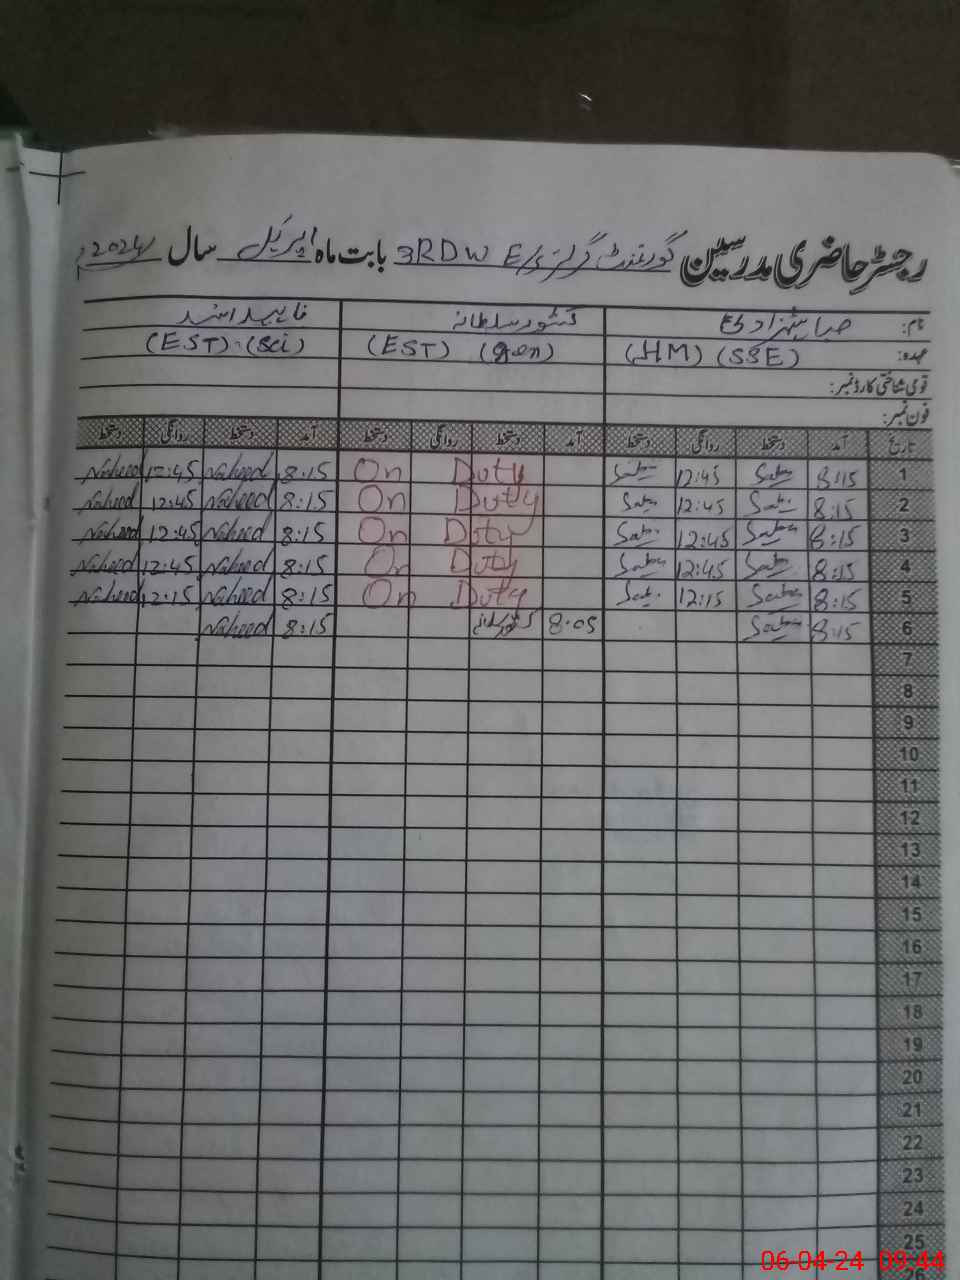 رجسٹر حاضری مدرسین گورنمنٹ گرلز E/S 3RDW بابت ماہ اپریل سال 2024ء
نام: صبا شہزادی کشور سلطانہ ناہید
عہدہ: (HM) (SSE) (EST) (gen) (EST) (Sci)
قومی شناختی کارڈ نمبر:
فون نمبر:
تاریخ آمد دستخط روانگی دستخط آمد دستخط روانگی دستخط آمد دستخط روانگی دستخط
1 8:15 Saba 12:45 Saba On Duty 8:15 Naheed 12:45 Naheed
2 8:15 Saba 12:45 Saba On Duty 8:15 Naheed 12:45 Naheed
3 8:15 Saba 12:45 Saba On Duty 8:15 Naheed 12:45 Naheed
4 8:15 Saba 12:45 Saba On Duty 8:15 Naheed 12:45 Naheed
5 8:15 Saba 12:15 Saba On Duty 8:15 Naheed 12:15 Naheed
6 8:15 Saba 8:05 کشور سلطانہ 8:15 Naheed
7
8
9
10
11
12
13
14
15
16
17
18
19
20
21
22
23
24
25
26
06-04-24 09:44